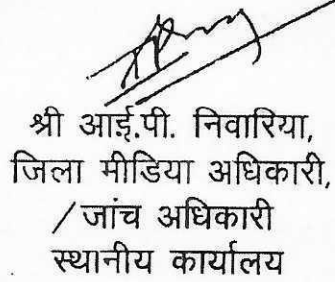 श्री आई.पी. निवारिया,
जिला मीडिया अधिकारी,
/जांच अधिकारी
स्थानीय कार्यालय